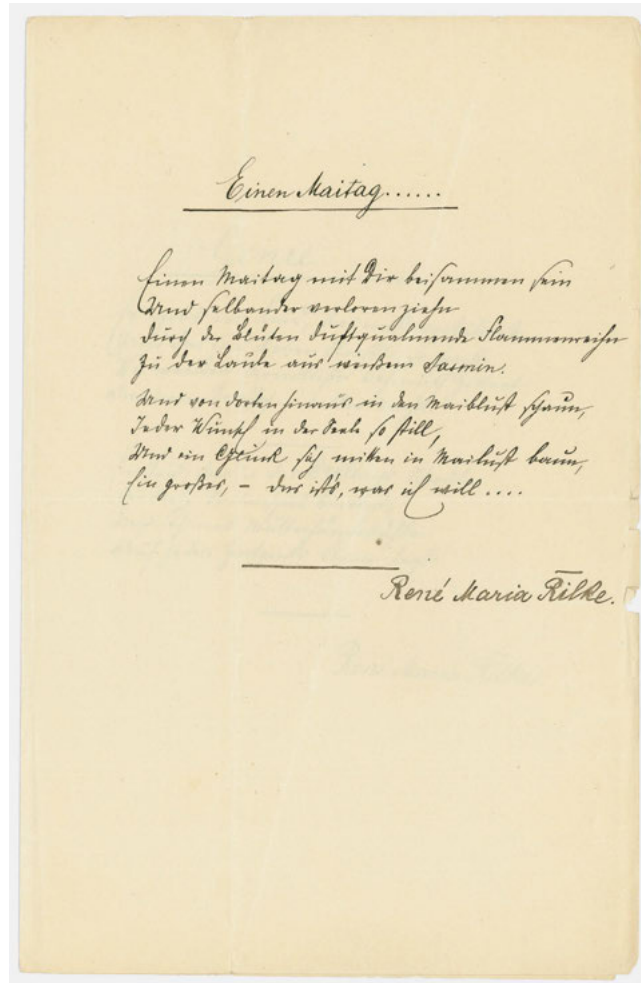 Einen Maitag......
Einen Maitag mit Dir beisammen sein
Und selbander verloren ziehn
Durch der Blüten duftqualmende Flammenreihn
Zu der Laube aus weißem Jasmin.
Und von dorten hinaus in den Maiblust schaun,
Jeder Wunsch in der Seele so still,
Und ein Glück sich mitten in Mailust baun,
Ein großes, – das ist's, was ich will ....
René Maria Rilke.